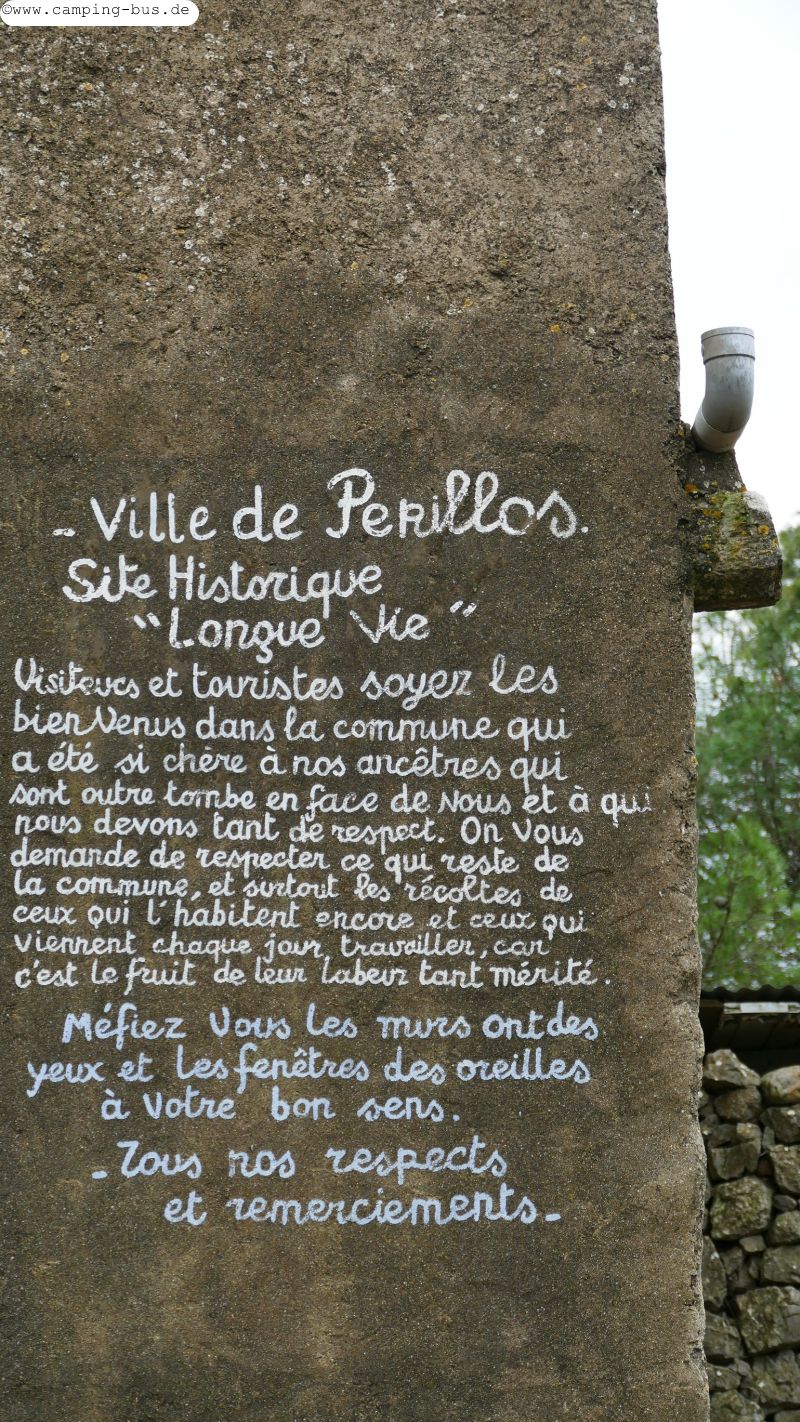 ©www.camping-bus.de
- Ville de Perillos.
Site Historique
"Longue Vie"
Visiteurs et touristes soyez les
bien Venus dans la commune qui
a été si chère à nos ancêtres qui
sont outre tombe en face de Nous et à qui
nous devons tant de respect. On Vous
demande de respecter ce qui reste de
la commune, et surtout les récoltes de
ceux qui l'habitent encore et ceux qui
viennent chaque jour, travailler, car
c'est le fruit de leur labeur tant mérité.
Méfiez Vous les murs ont des
yeux et les fenêtres des oreilles
à Votre bon sens.
- Tous nos respects
et remerciements -